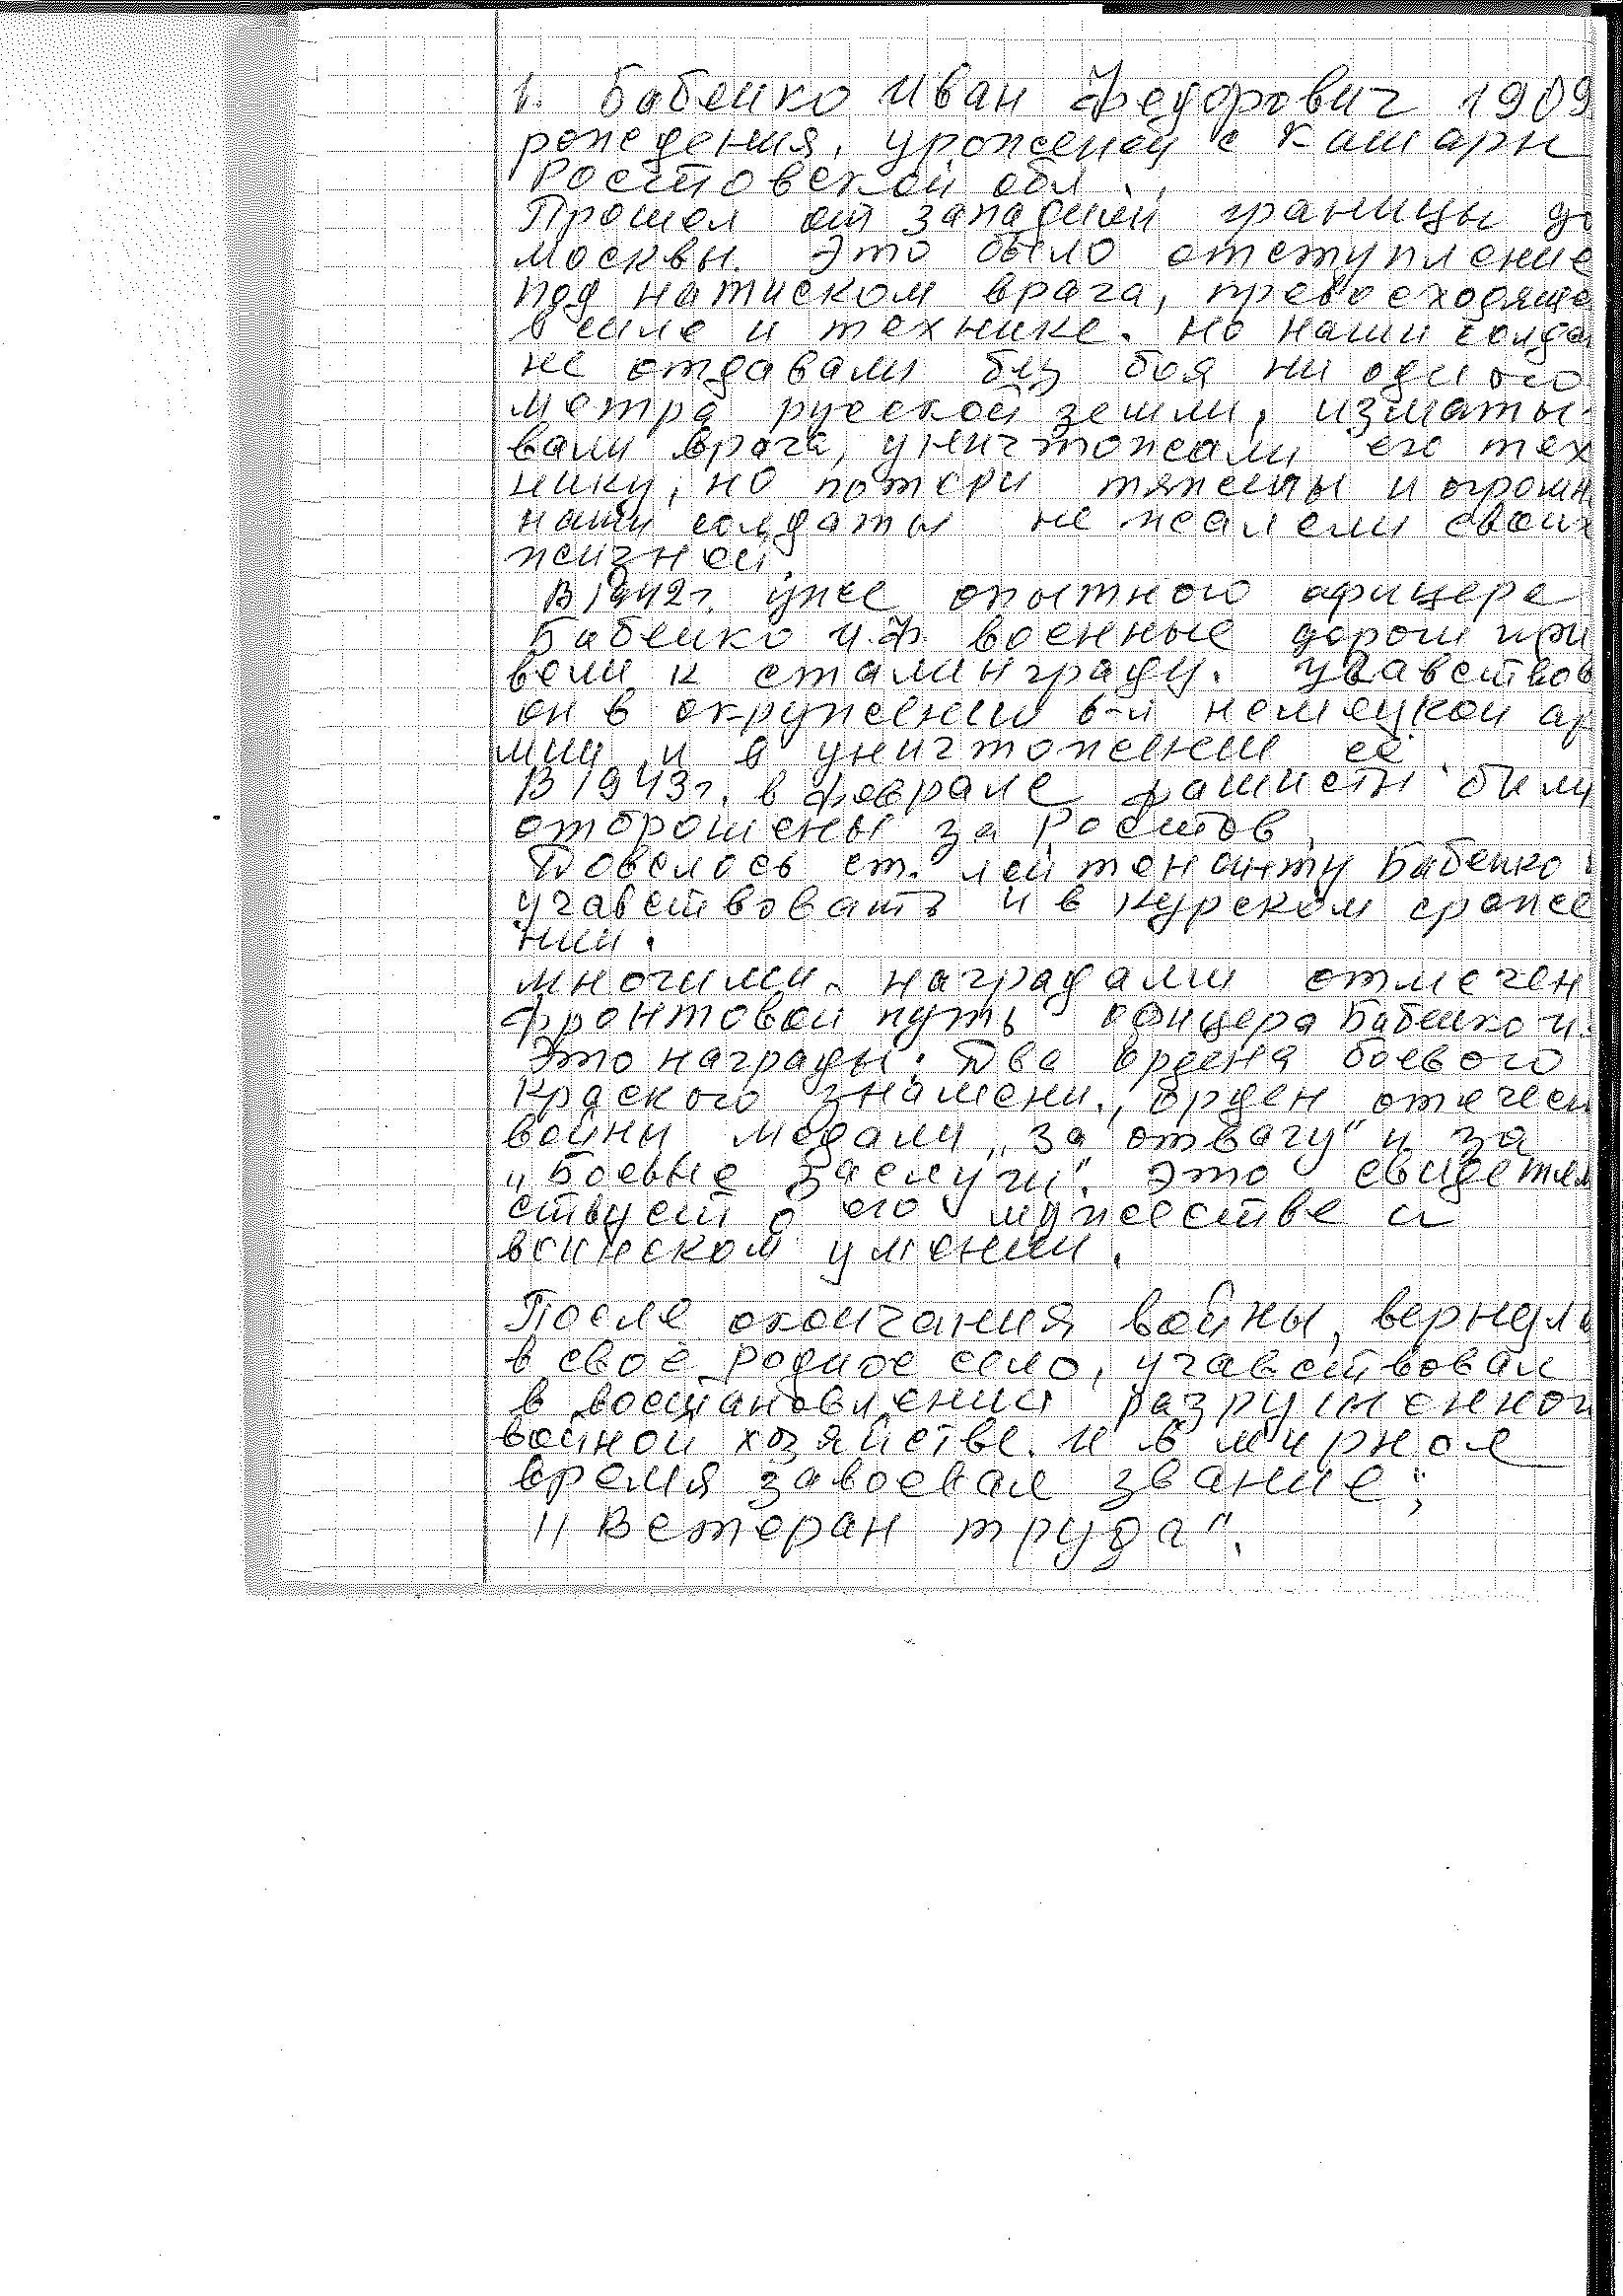 1. Бабенко Иван Федорович 1909
рождения, уроженец с Кашары
Ростовской обл.
Прошел от западной границы до
Москвы. Это было отступление
под натиском врага, превосходяще
в силе и технике. Но наши солда
не отдавали без боя ни одного
метра русской земли, изматы-
вали врага, уничтожали его тех
нику, но потери тяжелы и огромн
наши солдаты не жалели своих
жизней.
В 1942г. уже опытного офицера
Бабенко И.Ф. военные дороги при
вели к Сталинграду. Учавствов
он в окружении 6-й немецкой ар
мии и в уничтожении её.
В 1943г. в феврале фашисты были
отброшены за Ростов.
Довелось ст. лейтенанту Бабенко
учавствовать и в Курском сраже
нии.
Многими наградами отмечен
фронтовой путь офицера Бабенко И.
Это награды: Два ордена боевого
Красного знамени, орден отечест
войны медали „за отвагу" и за
„Боевые заслуги". Это свидетел
ствует о его мужестве и
воинском умении.
После окончания войны, вернул
в своё родное село, учавствовал
в востановлении разрушенной
войной хозяйстве. И в мирное
время завоевал звание;
„Ветеран труда".